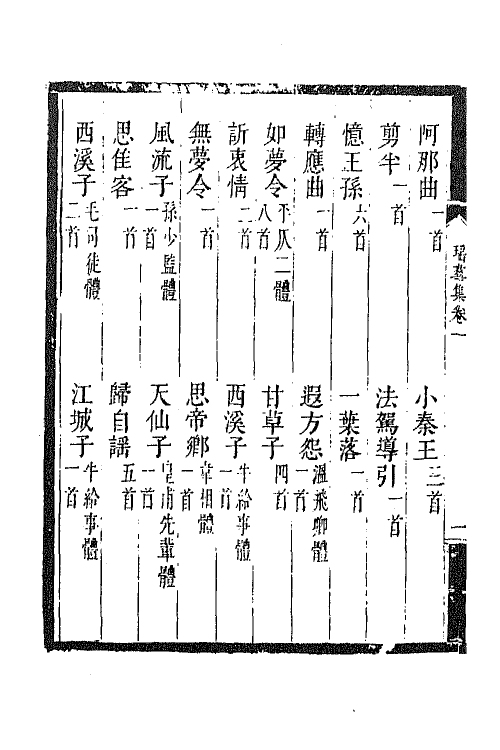 阿那曲一首　小秦王三首
剪半一首　法駕導引一首
憶王孫六首　一葉落一首
轉應曲一首　遐方怨溫飛卿體一首
如夢令平仄二體八首　甘草子四首
訴衷情二首　西溪子牛給事體一首
無夢令一首　思帝鄉韋相體一首
風流子孫少監體一首　天仙子皇甫先輩體一首
思佳客一首　歸自謡五首
西溪子毛司徒體二首　江城子牛給事體一首
集卷一
一